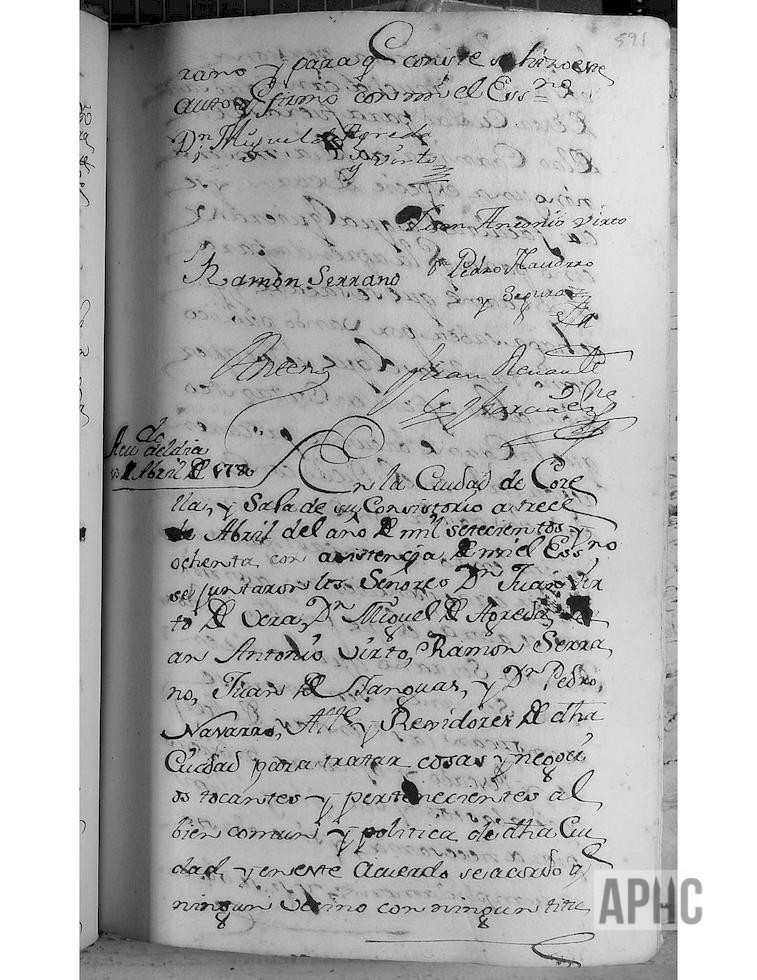 591
rano y para q conste se hizo este
auto y firmo con mi el Essno
Dn Miguel de Agreda
y Virto
Juan Antonio Virto
Ramon Serrano
Dn Pedro Navarro
y Segura
Juan Renault
Acudo del dia
13 Abril de 1780
En la Ciudad de Core
lla, y Sala de su Consistorio a trece
de Abril del año de mil setecientos y
ochenta con asistencia de mi el Essno
se juntaron los Señores Dn Juan Vir
to de Vera, Dn Miguel de Agreda, Ju
an Antonio Virto, Ramon Serra
no, Juan de Sanguas, y Dn Pedro
Navarro, Alle y Rexidores de dha
Ciudad para tratar cosas y negoci
os tocantes y pertenecientes al
bien comun y politica de dha Ciu
dad y en este Acuerdo se acordo q
ningun vecino con ningun titu
APHC